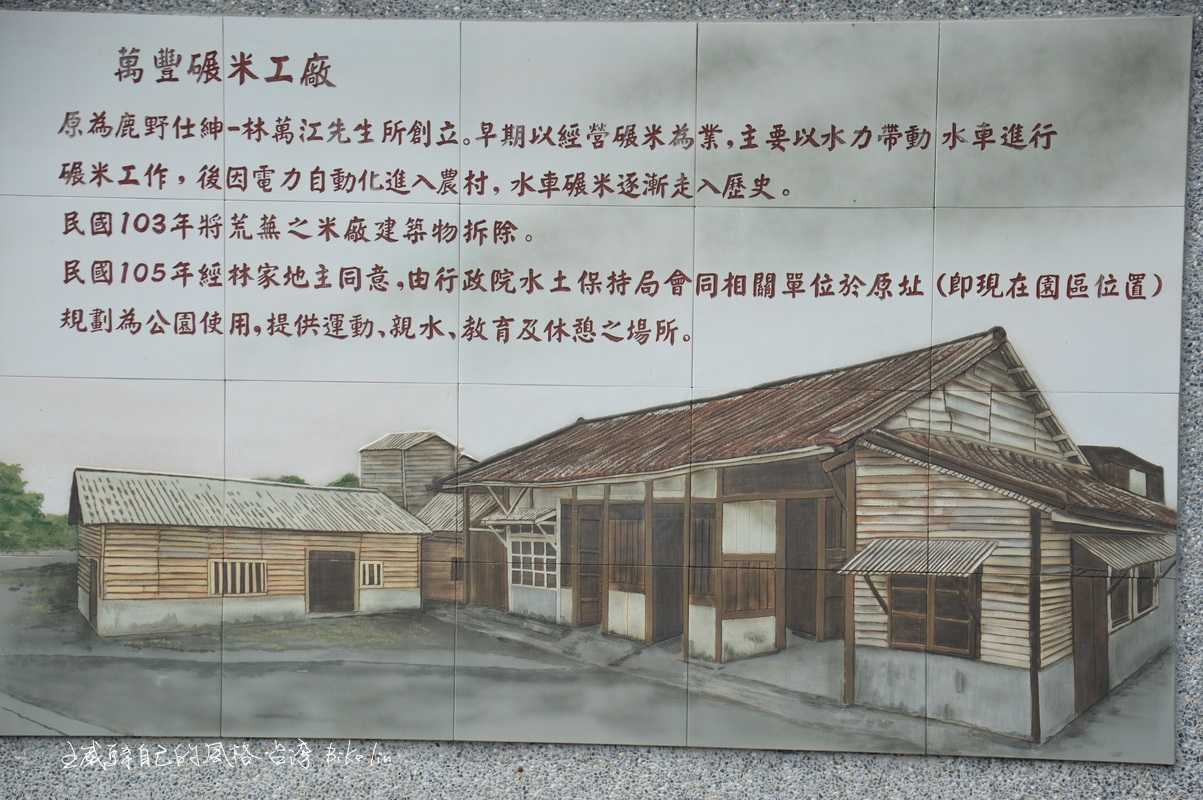 萬豐碾米工廠
原為鹿野仕紳-林萬江先生所創立。早期以經營碾米為業,主要以水力帶動水車進行
碾米工作,後因電力自動化進入農村,水車碾米逐漸走入歷史。
民國103年將荒蕪之米廠建築物拆除。
民國105年經林家地主同意,由行政院水土保持局會同相關單位於原址(即現在園區位置)
規劃為公園使用,提供運動、親水、教育及休憩之場所。
自己的風格.台灣 Biko lin